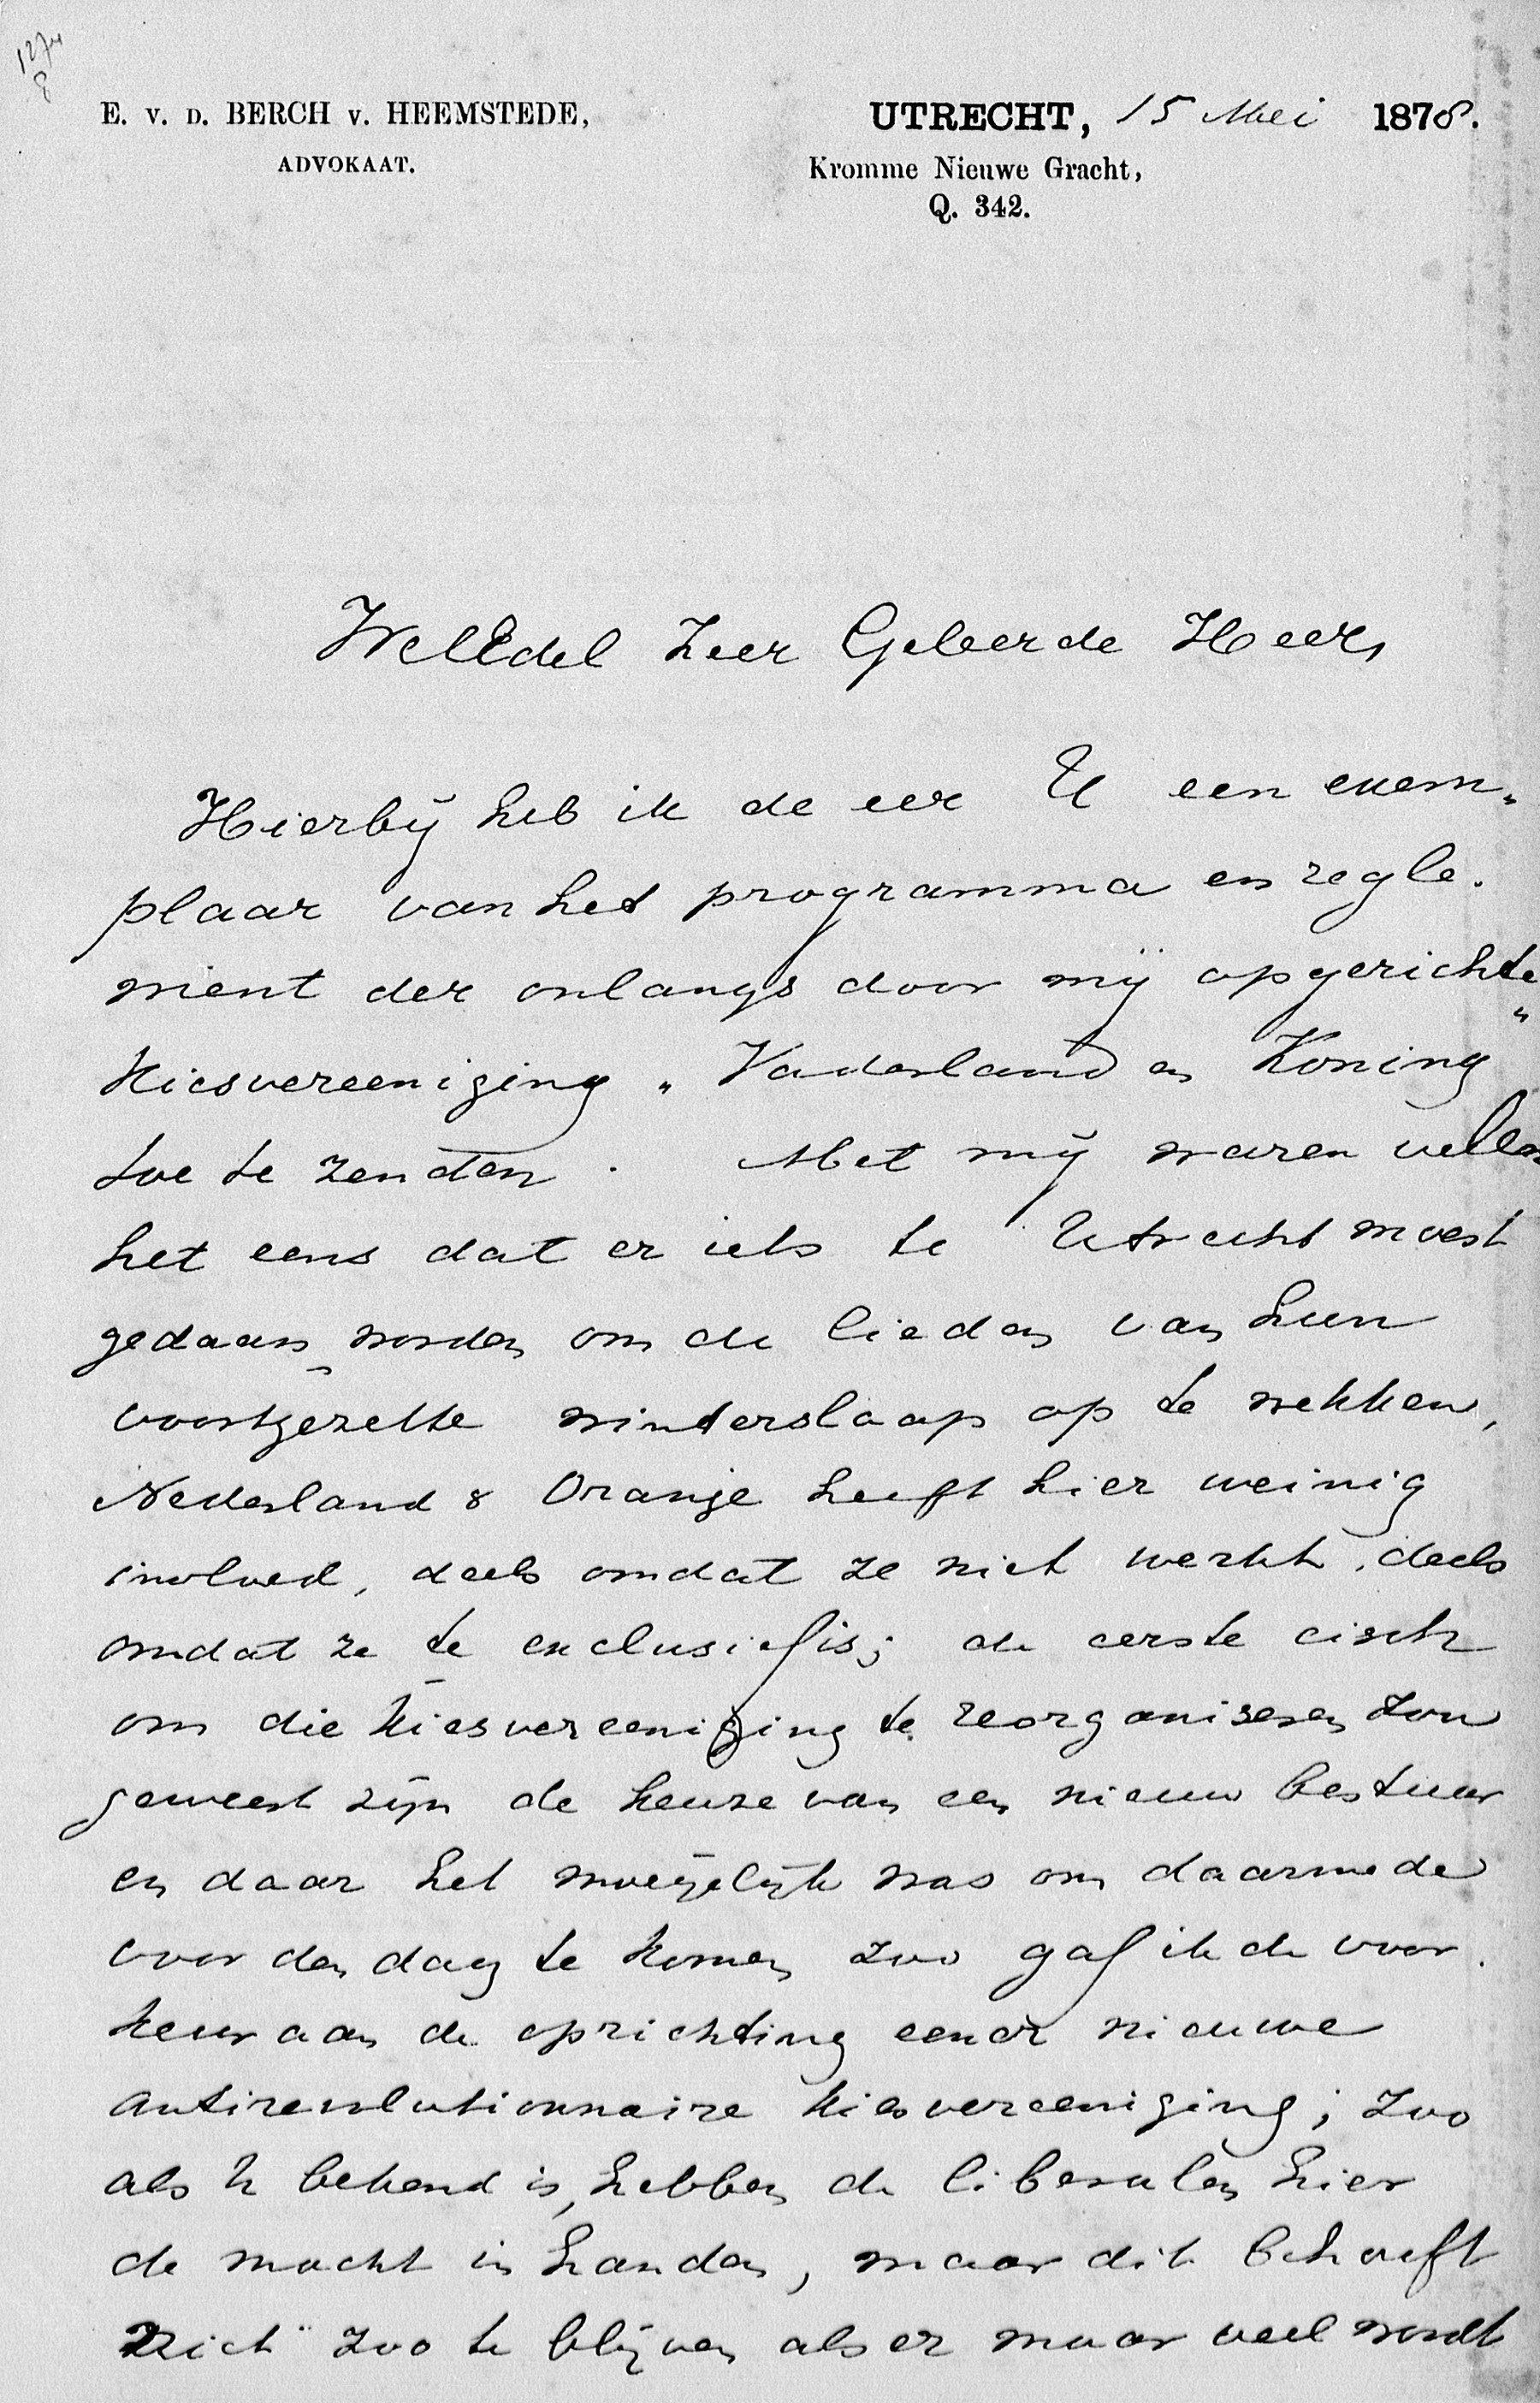 E. v. D. BERCH v. HEEMSTEDE,
ADVOKAAT.
UTRECHT, 15 Mei 1878.
Kromme Nieuwe Gracht,
Q. 342.
WelEdel Zeer Geleerde Heer,
Hierbij heb ik de eer U een exem„
plaar van het programma en regle.
ment der onlangs door mij opgerichte
Kiesvereeniging „Vaderland en Koning"
toe te zenden. Met mij waren velen
het eens dat er iets te Utrecht moest
gedaan worden om de lieden van hun
voortgezette winterslaap op te wekken,
Nederland & Oranje heeft hier weinig
invloed, deels omdat ze niet werkt, deels
omdat ze te exclusief is; de eerste eisch
om die kiesvereeniging te reorganiseren zou
geweest zijn de keuze van een nieuw bestuur
en daar het moeijelijk was om daarmede
voor den dag te komen zoo gaf ik de voor.
keur aan de oprichting eener nieuwe
antirevolutionnaire kiesvereeniging; zoo
als U bekend is, hebben de liberalen hier
de macht in handen, maar dit behoeft
niet zoo te blijven als er maar veel wordt